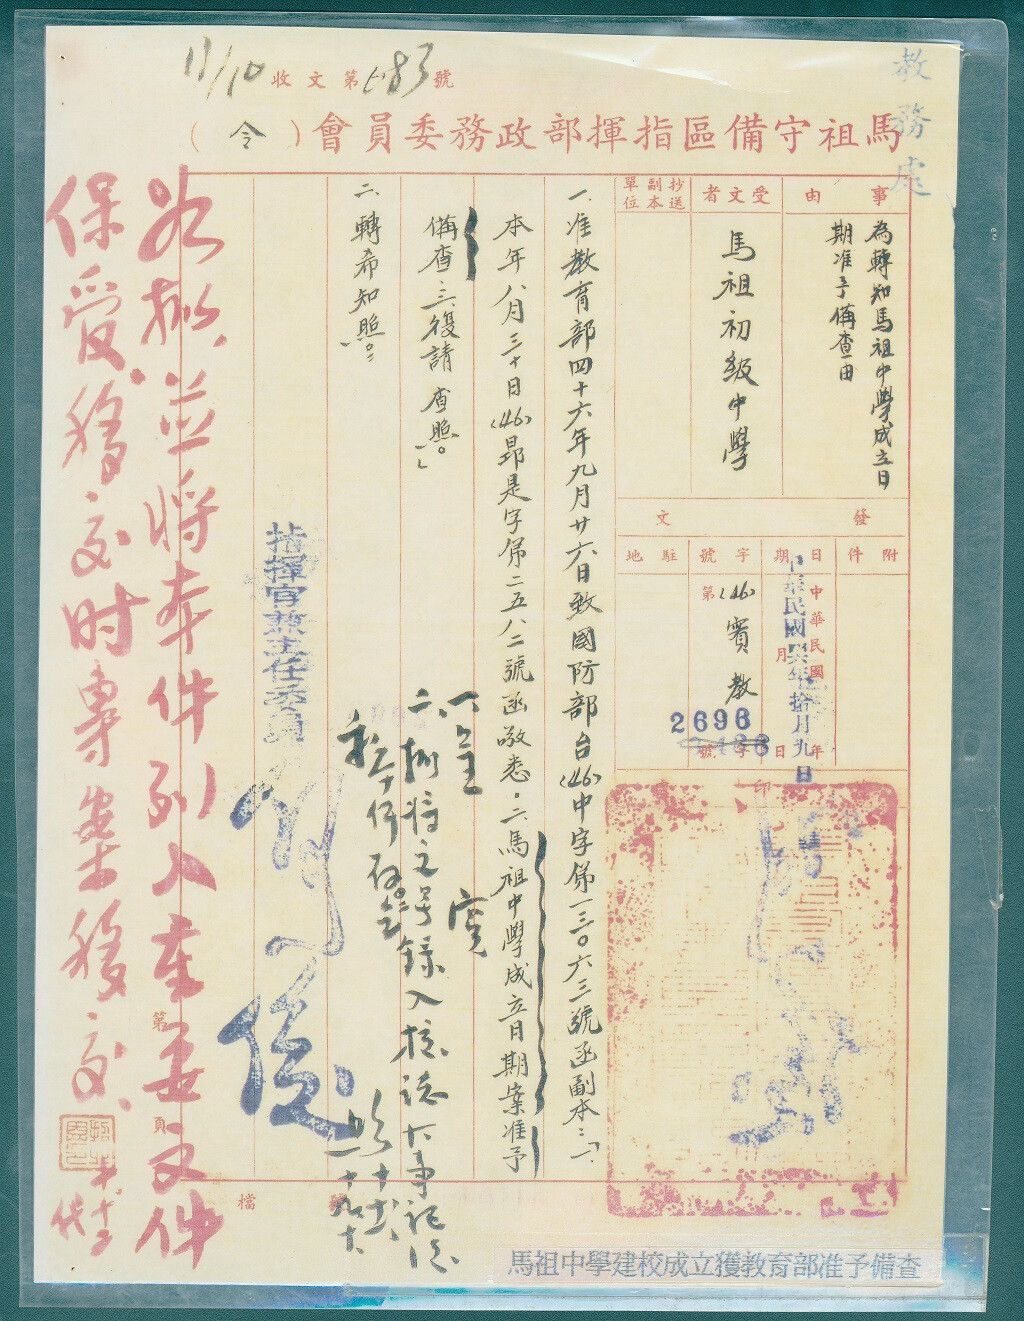 教務處
11/10 收文第683號
馬祖守備區指揮部政務委員會（令）
事由
為轉知馬祖中學成立日
期准予備查由
受文者
馬祖初級中學
抄送副本單位
發文
附件
日期
中華民國 年 月 日
中華民國 年拾月九日
字號
(46)實教
第 字 號
2696
駐地
印
一、准教育部四十六年九月廿六日致國防部台(46)中字第一三〇六三號函副本：「一、
本年八月三十日(46)昴是字第二五八二號函敬悉。二、馬祖中學成立日期案准予
備查。三、復請 查照。」
二、轉希知照。
指揮官兼主任委員
一、呈 閱
二、擬將文號錄入校誌大事記後
本件存
如擬，並將本件列入重要文件
保管，移交時專案移交
第 頁
檔
馬祖中學建校成立獲教育部准予備查